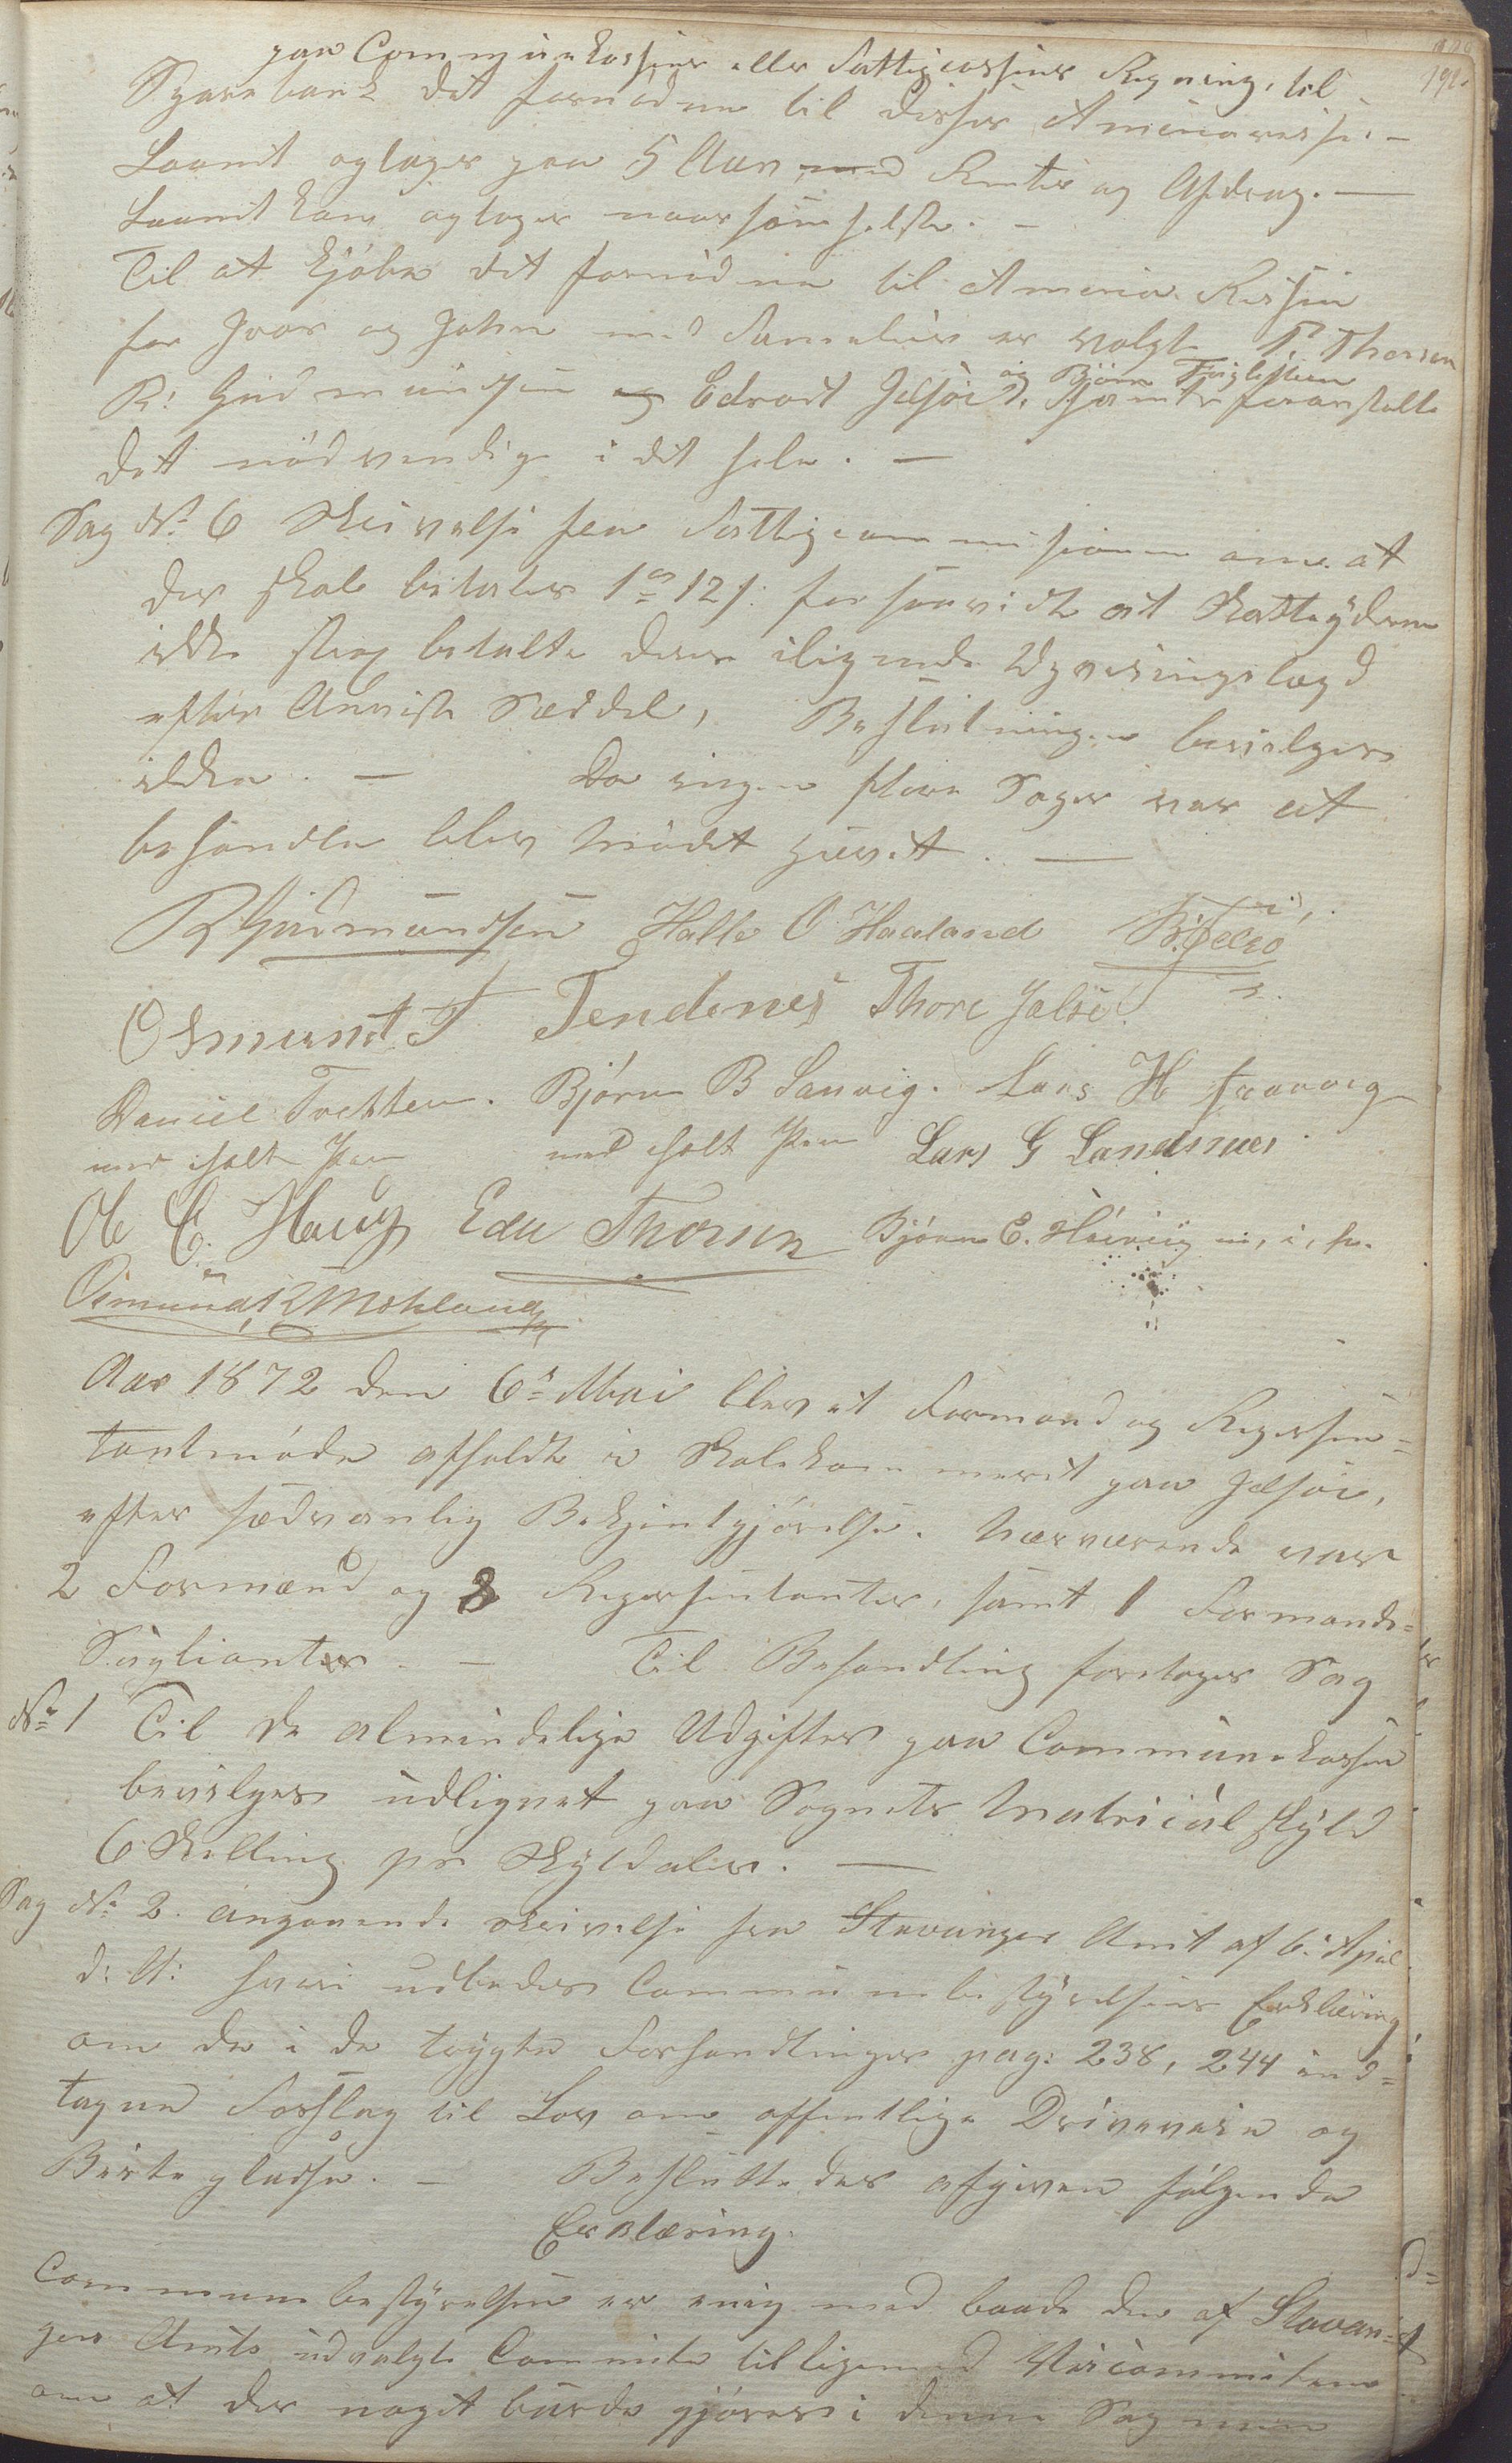 191.
paa Communekassens eller Fattigcassens Regning, til
Sparebank det fornødne til disses Amerikareise. —
Laanet optages paa 5 Aar med Renter og Afdrag. —
Laanet kan optages naarsomhelst. —
Til at kjøbe det fornødne til America Reisen
for Ivar og John med Familier er valgt T. Thorsen
og Bjørn Fuglestein
R: Gudmundsen og Edvart Jelsøe, samt foranstalte
det nødvendige i det hele. —
Sag No 6 Skrivelse fra Fattigcommisionen om at
der skal betales 12 s: forsaavidt at Skatteyderne
ikke strax betalte deres ilignede Udvisningslægd
efter Anviste Seddel, Beslutningen bevilges
ikke. — Da ingen flere Sager var at
behandle blev Mødet hævet. —
R Gudmundsen Halle O Haaland
Osmund T Tendenes Thore Jelsøe
Daniel Tvehten. Bjørn B Sanvig. Lars H
med holdt Pen med holt Pen Lars G Landsnæs
Ole E. Haug Edu Thorsen Bjørn E. Høivig m, i, P.
Osmund R Mehland
Aar 1872 den 6te Mai blev et Formand og Repræsen=
tantmøde afholdt i Skolekammeret paa Jelsøe,
efter sædvanlig Bekjentgjørelse. Nærværende var
2 Formænd og 8 Repræsentanter, samt 1 Formands=
Suplianter. — Til Behandling foretages Sag
No 1 Til de almindelige Udgifter paa Communekassen
bevilges udlignet paa Sognets Matriculskyld
6 Skilling pr Skylddaler. —
Sag No 2. angaaende skrivelse fra Stavanger Amt af 6. April
d: A: hvori udbedes Communebestyrelsens Erklæring
om de i de trygte Forhandlinger pag: 238, 244 ind=
tagne Forslag til Lov om offentlige Driveveie og
Beitepladse. — Besluttedes afgiven følgende
Erklæring.
Communebestyrelsen er enig med baade den af Stavan=
ger Amts udvalgte Committe tilligemed Veicommiteen
om at der noget burde gjøres i denne Sag men